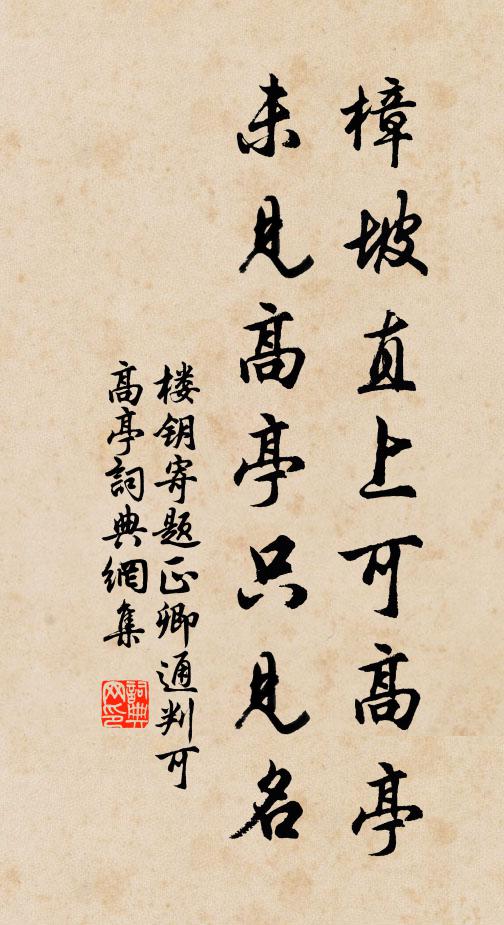 樟坡直上可高亭
未见高亭只见名
楼钥寄题正卿通判可
高亭詞典網集
詞典网印